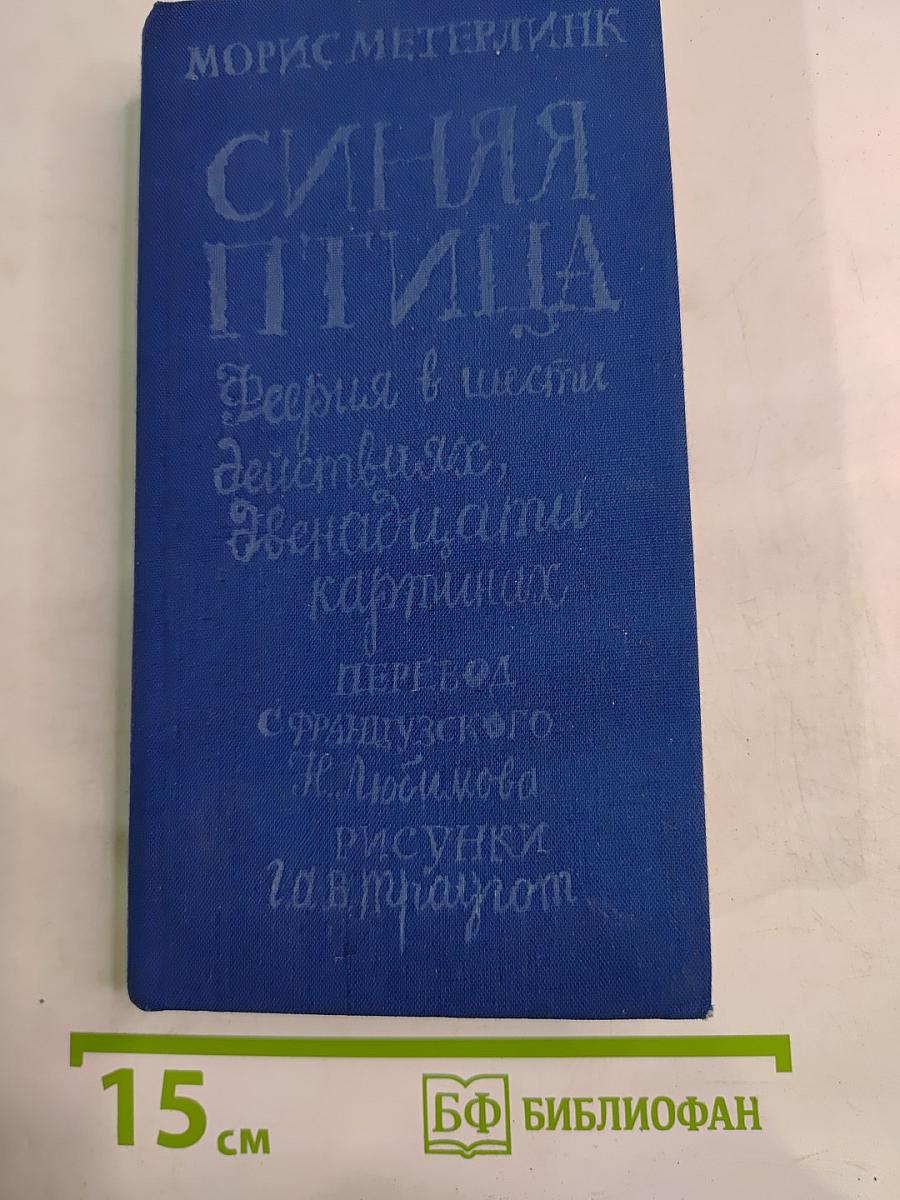 МОРИС МЕТЕРЛИНК
СИНЯЯ
ПТИЦА
Феерия в шести
действиях,
двенадцати
картинах
ПЕРЕВОД
С ФРАНЦУЗСКОГО
Н. Любимова
РИСУНКИ
Г.А.В. Траугот
15 см
БФ БИБЛИОФАН